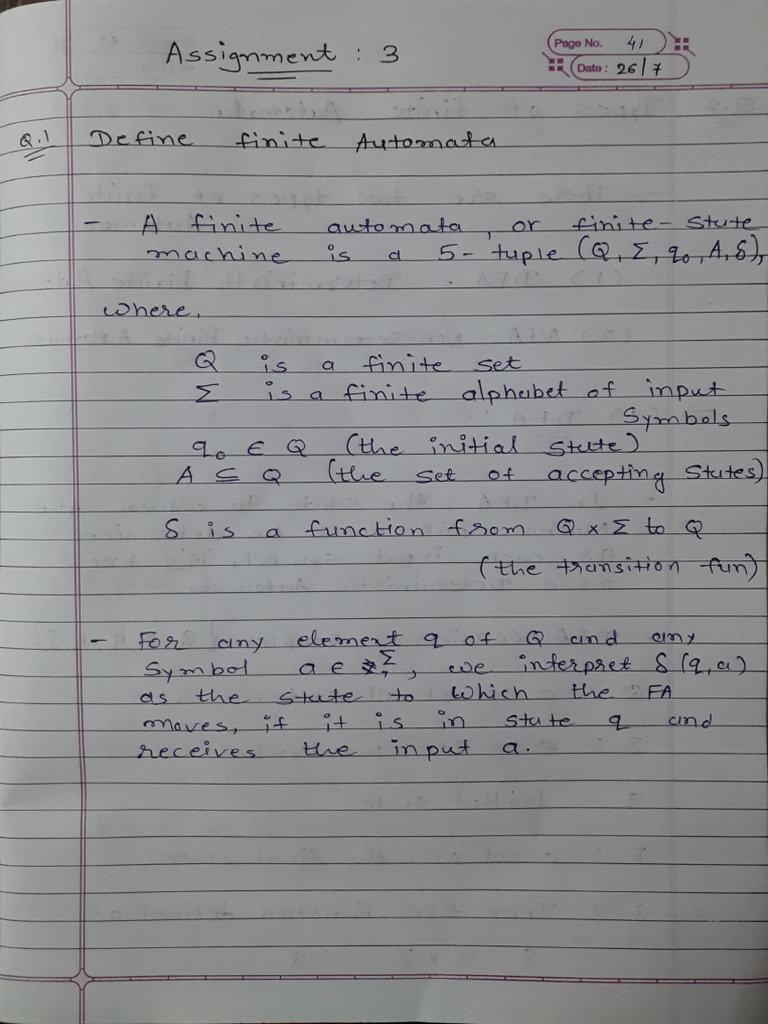 Assignment : 3
Page No. 41
Date: 26/7
Q.1 Define finite Automata
- A finite automata, or finite-state
machine is a 5-tuple (Q, Σ, q₀, A, δ),
where,
Q is a finite set
Σ is a finite alphabet of input
Symbols
q₀ ∈ Q (the initial state)
A ⊆ Q (the set of accepting states)
δ is a function from Q x Σ to Q
(the transition fun)
- For any element q of Q and any
Symbol a ∈ Σ, we interpret δ (q, a)
as the state to which the FA
moves, if it is in state q and
receives the input a.